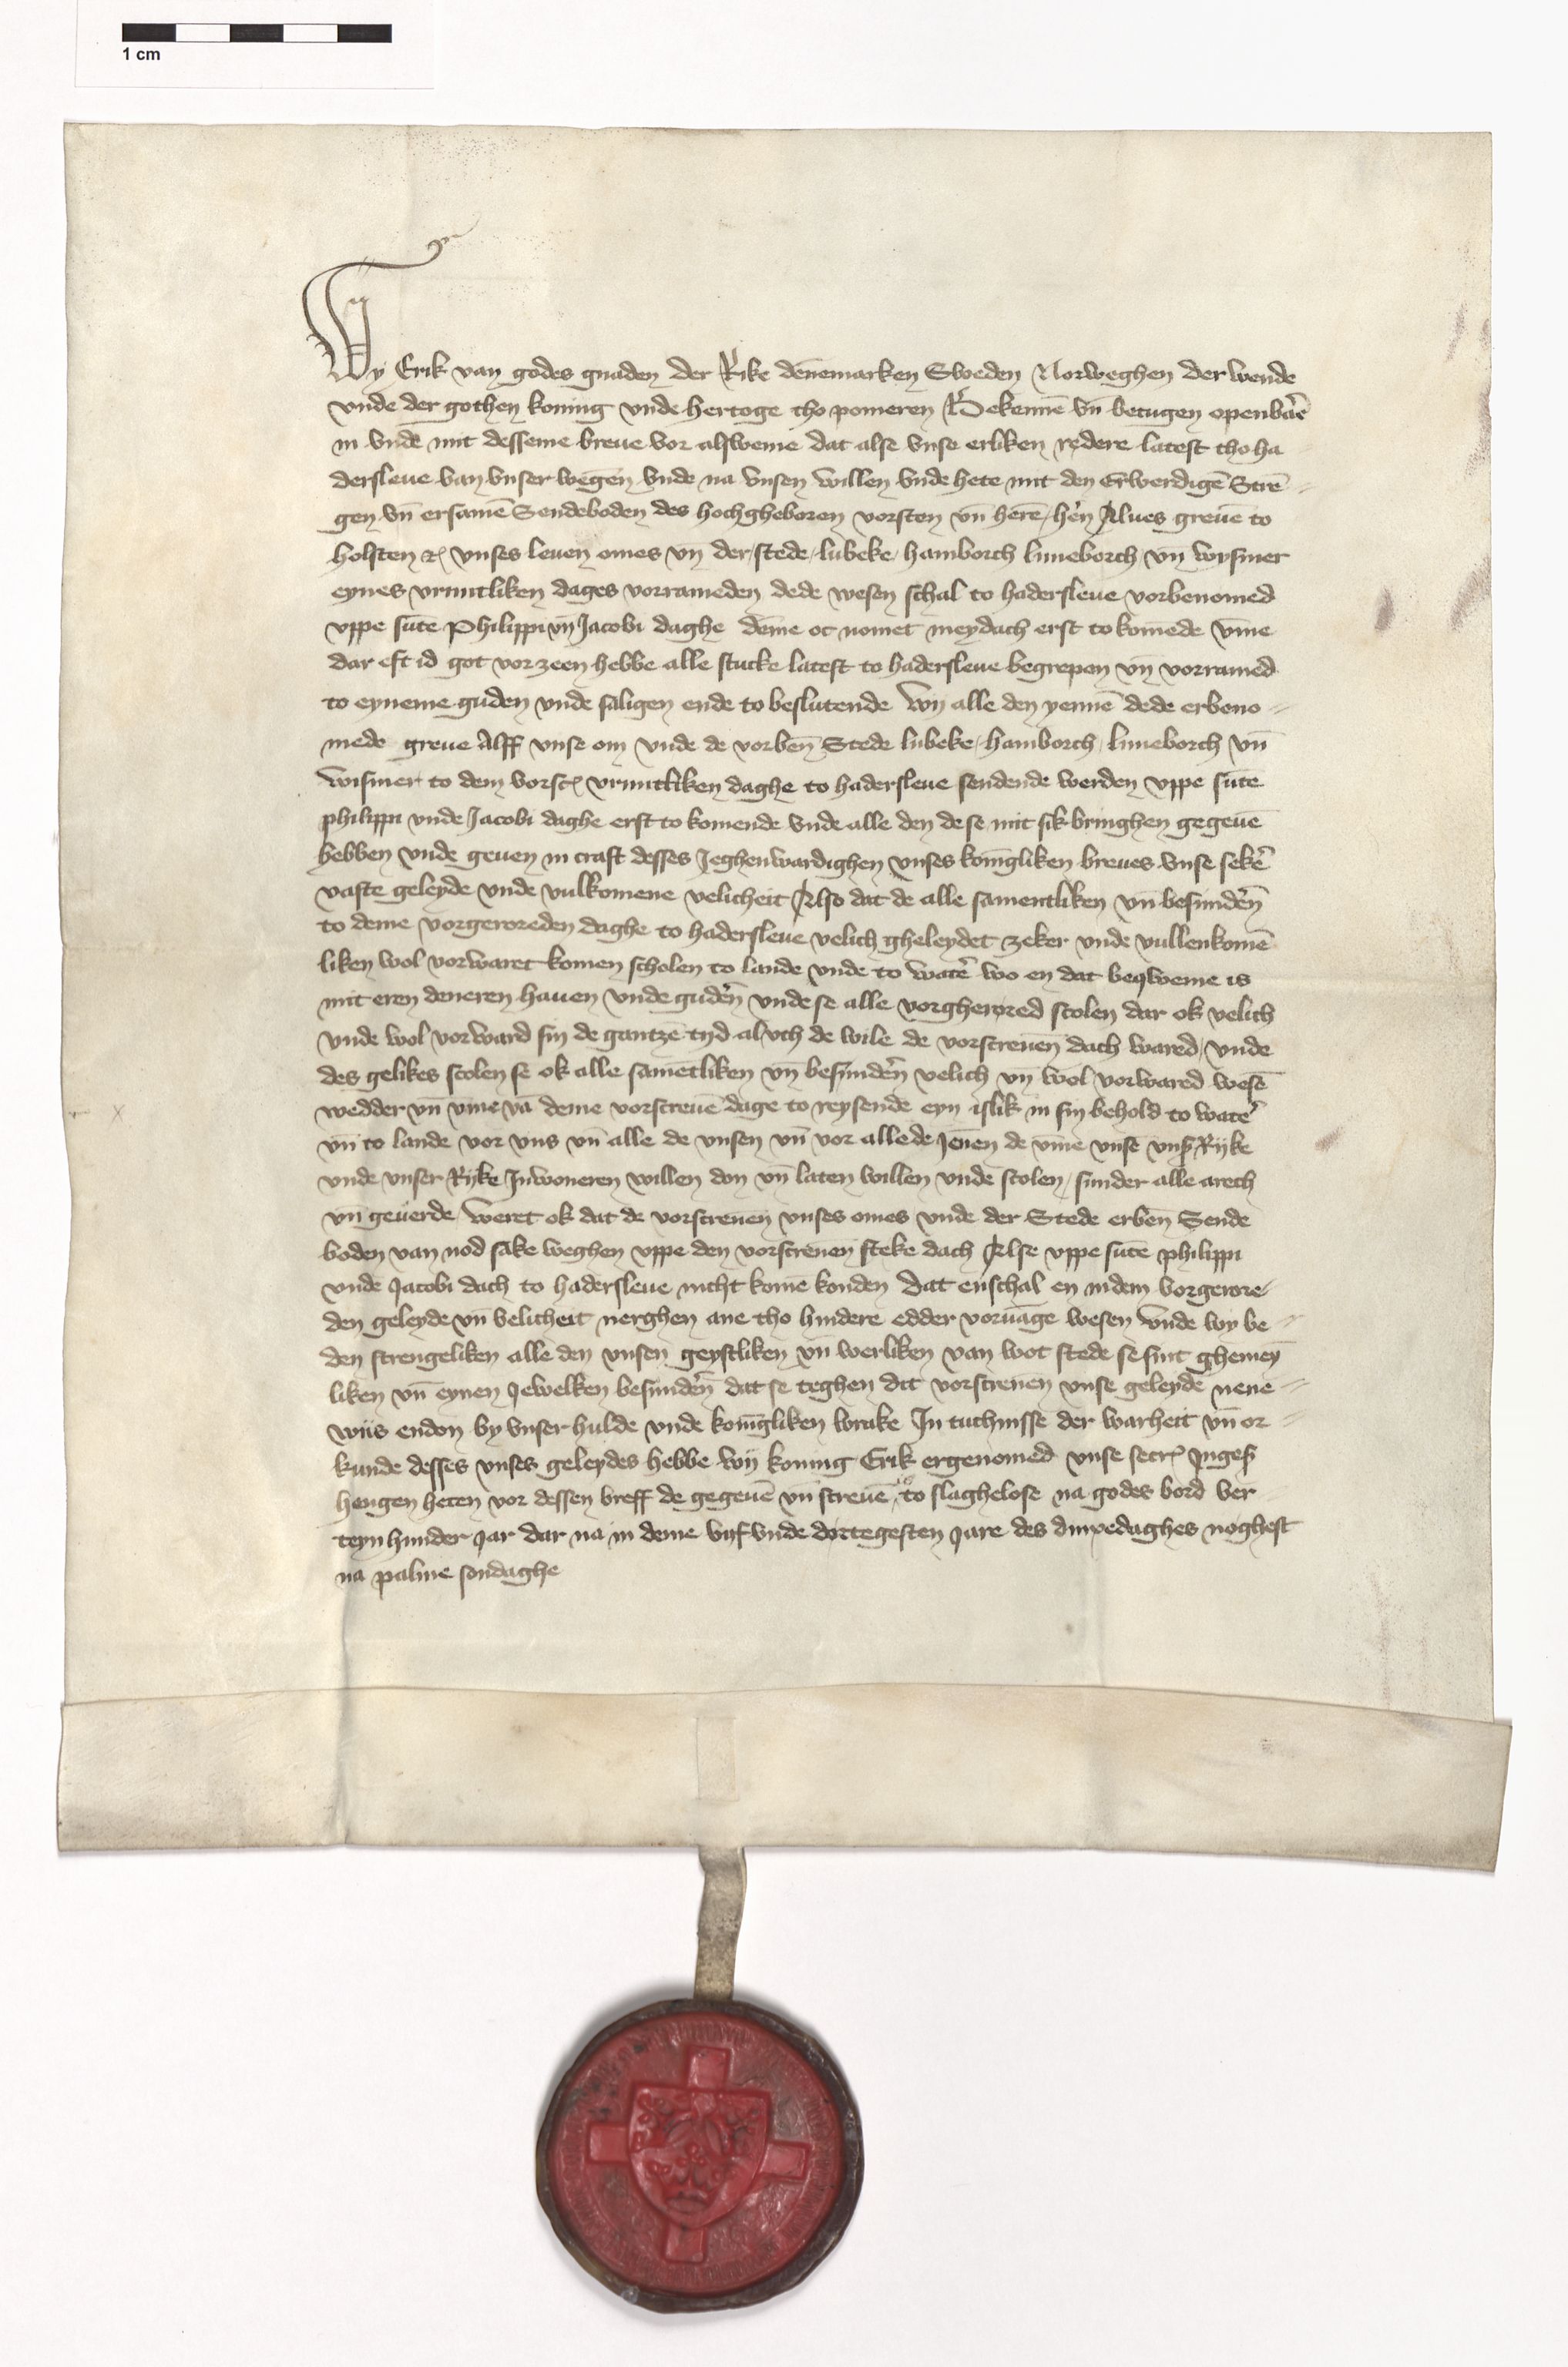 1 cm
Wy Erik van godes gnaden der Rike dēnemarken Sweden Norweghen der wende
vnde der gothen koning vnde hertoge tho pomeren Bekennē vn̄ betugen openbar̄e
in vnde mit desseme breue vor alsweme dat alse vnse erliken redere latest tho ha
dersleue van vnser wegen vnde na vnsen willen vnde hete mit den Erwerdigē Strē
gen vn̄ ersamē Sendeboden des hochgheboren vorsten vn̄ herē, hern Alues greue to
holsten ꝛc vnses leuen omes vn̄ der stede, lubeke, hamborch luneborch vn̄ wysmer
eynes vruntliken dages vorrameden dede wesen schal to hadersleue vorbenomed
vppe sūte Philippi vn̄ Jacobi daghe dēme oc nomet meydach erst tokomēde vm̄e
dar eft id got vorzeen hebbe alle stucke latest to hadersleue begrepen vn̄ vorramed
to eyneme guden vnde saligen ende to beslutende Wy alle den yennē dede erbeno
mede greue Alff vnse om vnde de vorben̄ Stede lubeke, hamborch, luneborch vn̄
wismer to dem vorscꝛ vruntliken daghe to hadersleue sendende werden vppe sūte
philippi vnde Jacobi daghe erst to komende vnde alle den de se mit sik bringhen gegeuē
hebben vnde geuen in craft desses Jeghenwardighen vnses konīgliken breues vnse seker̄
vaste geleyde vnde vulkomene velicheit Also dat de alle samentliken vn̄ besundern̄
to deme vorgeroreden daghe to hadersleue velich gheleydet zeker vnde vullenkomē
liken wol vorwaret komen scholen to lande vnde to water̄ wo en dat beqweme is
mit eren deneren hauen vnde gudern̄ vnde se alle vorgherored scolen dar ok velich
vnde wol vorward sin de gantze tyd al vth de wile de vorscreuen dach wared, vnde
des gelikes scolen se ok alle samētliken vn̄ besundern̄ velich vn̄ wol vorwared wesē
wedder vn̄ vm̄e vā deme vorscreuē dage to reysende eyn islik in sin behold to water̄
vn̄ to lande vor vns vn̄ alle de vnsen vn̄ vor alle de Jenen de vm̄e vnse vnser Rijke
vnde vnser Rijke Jnwoneren willen don vn̄ laten willen vnde scolen, sunder alle arech
vn̄ geuerde, weret ok dat de vorscreuen vnses omes vnde der Stede erben̄ Sende
boden van nod sake weghen vppe den vorscreuen steke dach Alse vppe sūte philippi
vnde Jacobi dach to hadersleue nicht komē konden dat enschal en indem vorgerore
den geleyde vn̄ velicheit nerghen ane tho hindere edder voruāge wesen vnde wy be
den strengeliken alle den vnsen geystliken vn̄ werliken van wot stede se sint ghemey
liken vn̄ eynen Jewelken besundern̄ dat se teghen dit vorscreuen vnse geleyde nene
wiis endon by vnser hulde vnde konīgliken wrake Jn tuchnisse der warheit vn̄ or
kunde desses vnses geleydes hebbe wy koning Erik ergenomed vnse secrꝛ Jnges̄
hengen heten vor dessen breff de gegeuē vn̄ screuē is to slaghelose na godes bord ver
teyn hunder Jar dar na in deme vyf vnde dortegesten Jare des dinxedaghes neghest
na palme sondaghe